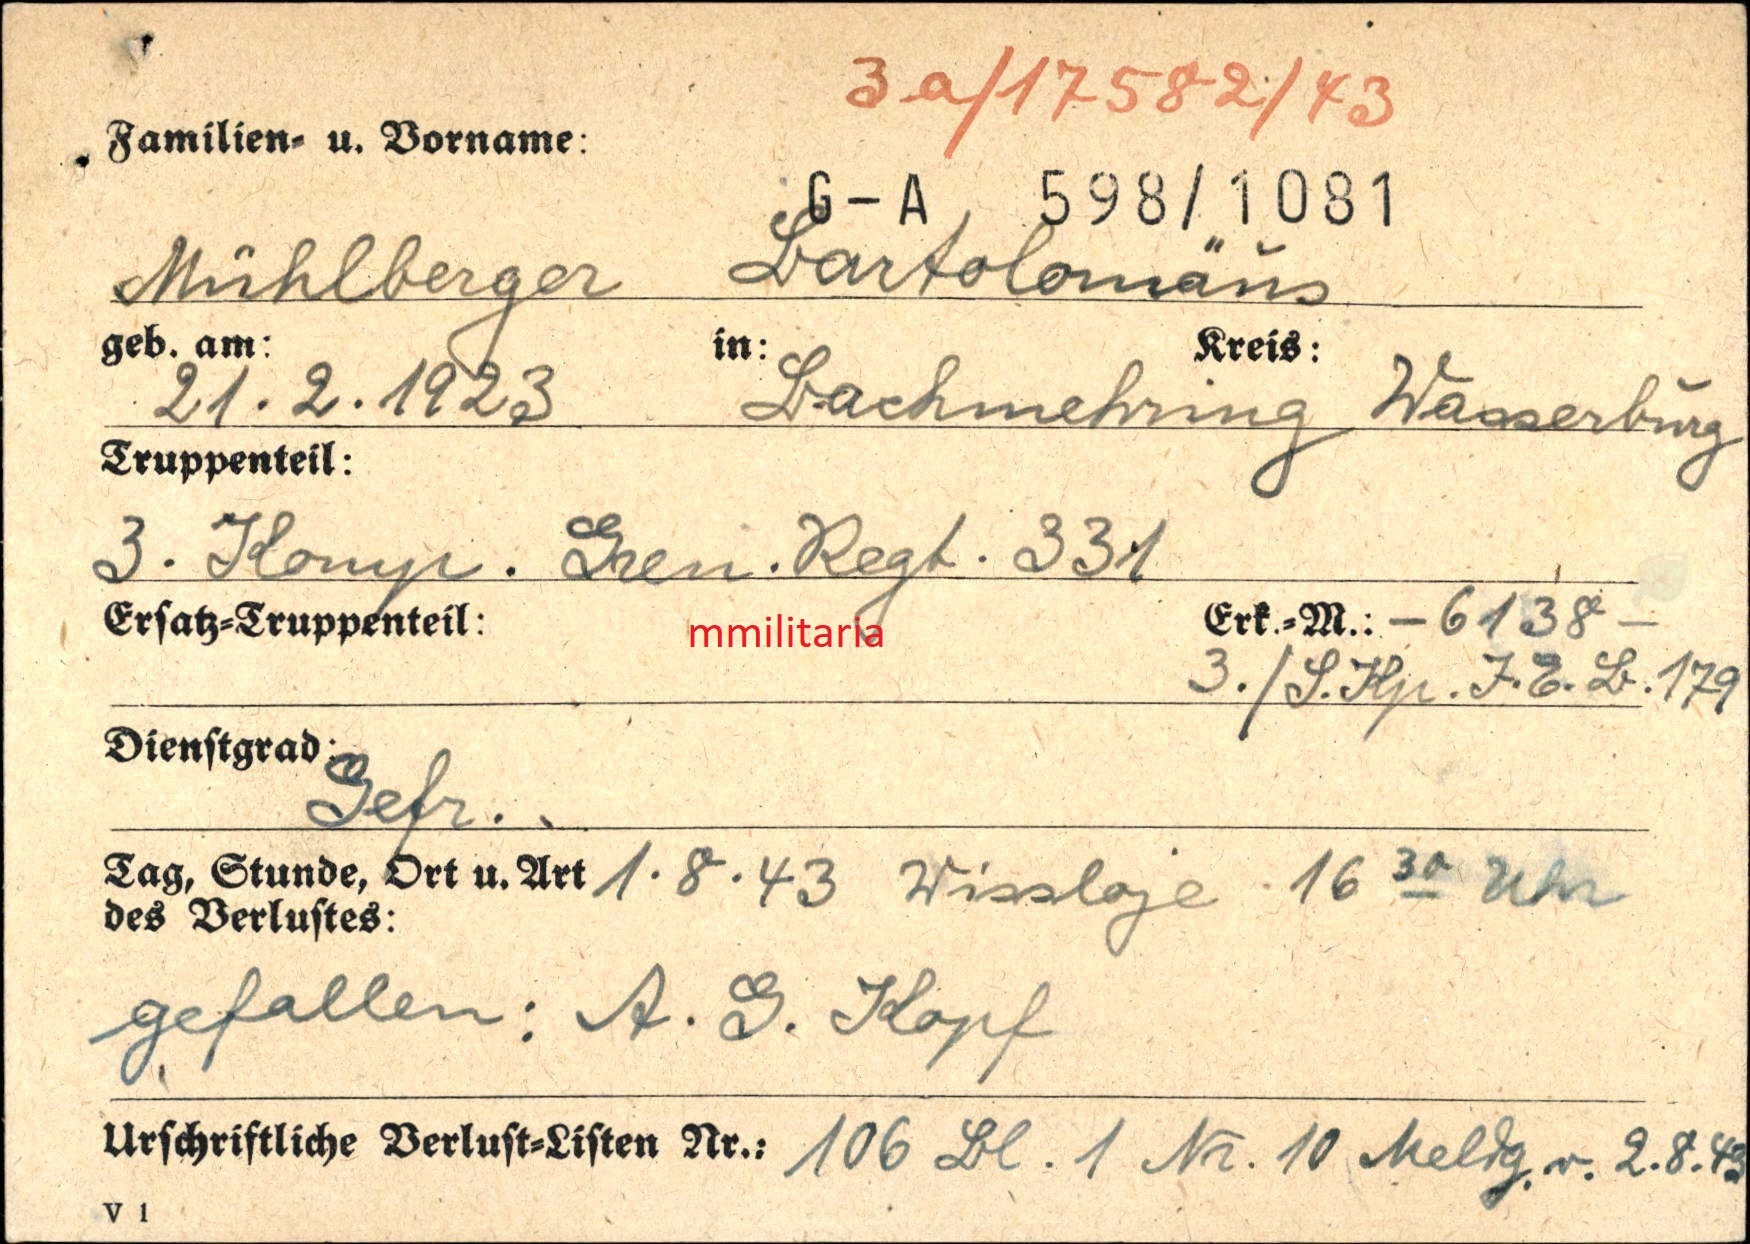 3a/17582/43
Familien- u. Vorname:
G-A 598/1081
Mühlberger Bartolomäus
geb. am: in: Kreis:
21.2.1923 Bachmehring Wasserburg
Truppenteil:
3. Komp. Gren. Regt. 331
Ersatz-Truppenteil: mmilitaria Erk.-M.: -6138-
3./S.Kp. J.E.B. 179
Dienstgrad:
Gefr.
Tag, Stunde, Ort u. Art 1.8.43 Wissloje 16 30 Uhr
des Verlustes:
gefallen: A. G. Kopf
Urschriftliche Verlust-Listen Nr.: 106 Bl. 1 Nr. 10 Meldg. v. 2.8.43
V 1